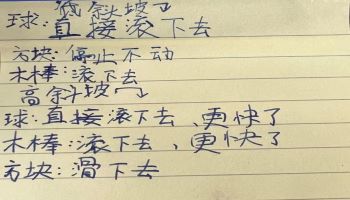 低斜坡
球:直接滚下去
方块:停止不动
木棒:滚下去
高斜坡
球:直接滚下去、更快了
木棒:滚下去、更快了
方块:滑下去